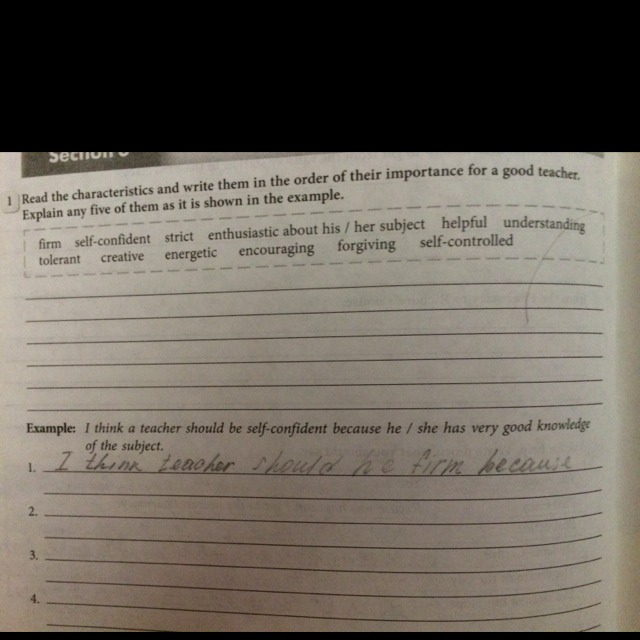 Section
1 Read the characteristics and write them in the order of their importance for a good teacher.
Explain any five of them as it is shown in the example.
firm self-confident strict enthusiastic about his / her subject helpful understanding
tolerant creative energetic encouraging forgiving self-controlled
Example: I think a teacher should be self-confident because he / she has very good knowledge
of the subject.
1. I think teacher should be firm because
2.
3.
4.